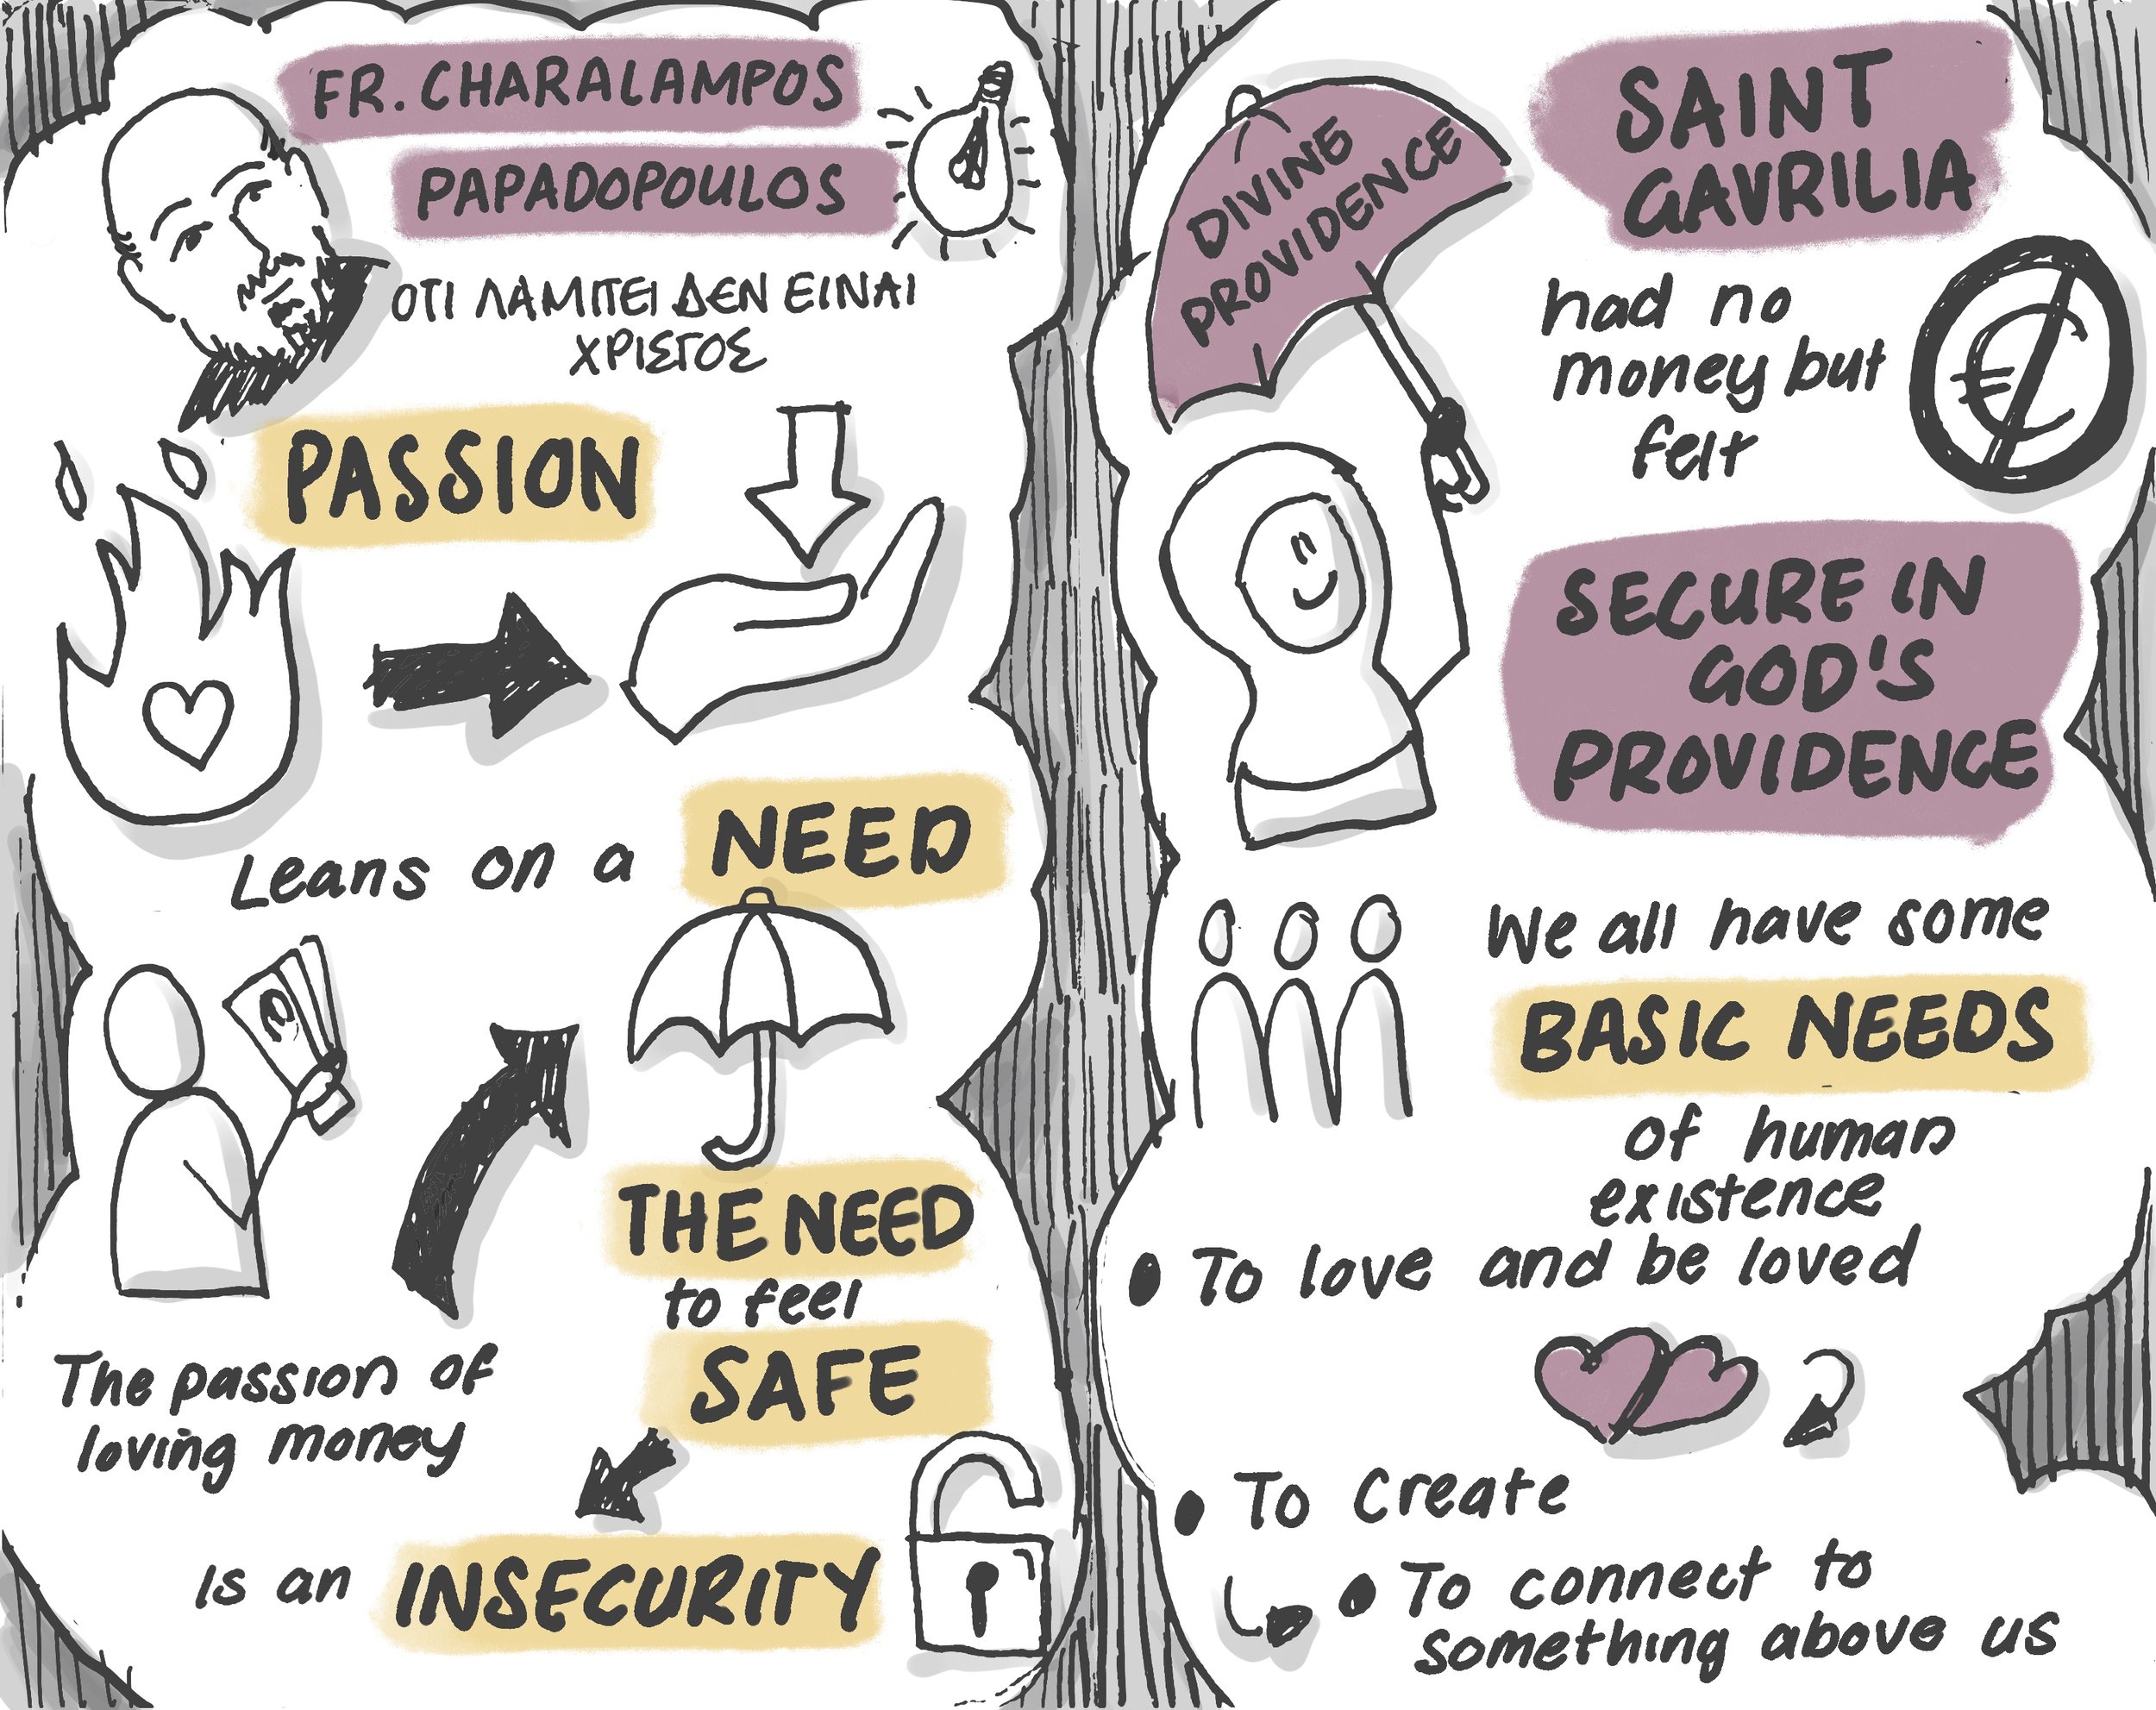 FR. CHARALAMPOS
PAPADOPOULOS
ΟΤΙ ΛΑΜΠΕΙ ΔΕΝ ΕΙΝΑΙ
ΧΡΙΣΤΟΣ
PASSION
Leans on a NEED
THE NEED
to feel
SAFE
The passion of
loving money
is an INSECURITY
SAINT
GAVRILIA
DIVINE
PROVIDENCE
had no
money but
felt
€
SECURE IN
GOD'S
PROVIDENCE
We all have some
BASIC NEEDS
of human
existence
• To love and be loved
• To create
• To connect to
something above us